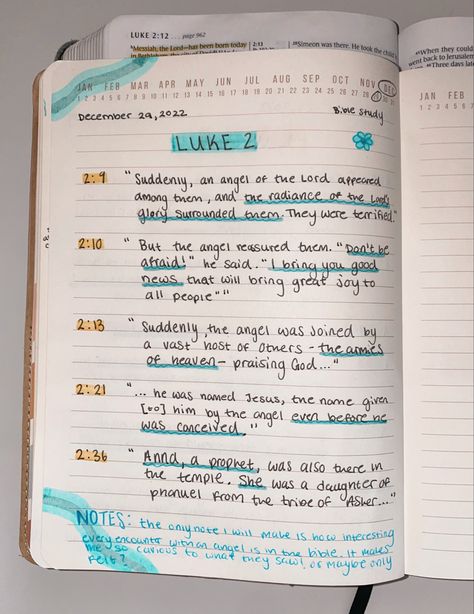 LUKE 2:12 ... page 962
Messiah, the Lord—has been born today
2:13
Simeon was there. He took the child
"When they could
went back to Jerusalem
"Three days later
JAN FEB MAR APR MAY JUN JUL AUG SEP OCT NOV DEC
1 2 3 4 5 6 7 8 9 10 11 12 13 14 15 16 17 18 19 20 21 22 23 24 25 26 27 28 29 30 31
JAN FEB
1 2 3 4 5 6
December 29, 2022
Bible study
LUKE 2
2:9 "Suddenly, an angel of the Lord appeared
among them, and the radiance of the Lord's
glory surrounded them. They were terrified."
2:10 " But the angel reassured them. "Don't be
afraid!" he said. "I bring you good
news that will bring great joy to
all people"""
2:13 " Suddenly, the angel was joined by
a vast host of others - the armies
of heaven - praising God..."
2:21 "... he was named Jesus, the name given
[to] him by the angel even before he
was conceived."
2:36 " Anna, a prophet, was also there in
the temple. She was a daughter of
phanuel from the tribe of Asher..."
NOTES: the only note I will make is how interesting
every encounter with an angel is in the bible. It makes
me so curious to what they saw! or maybe only
felt?